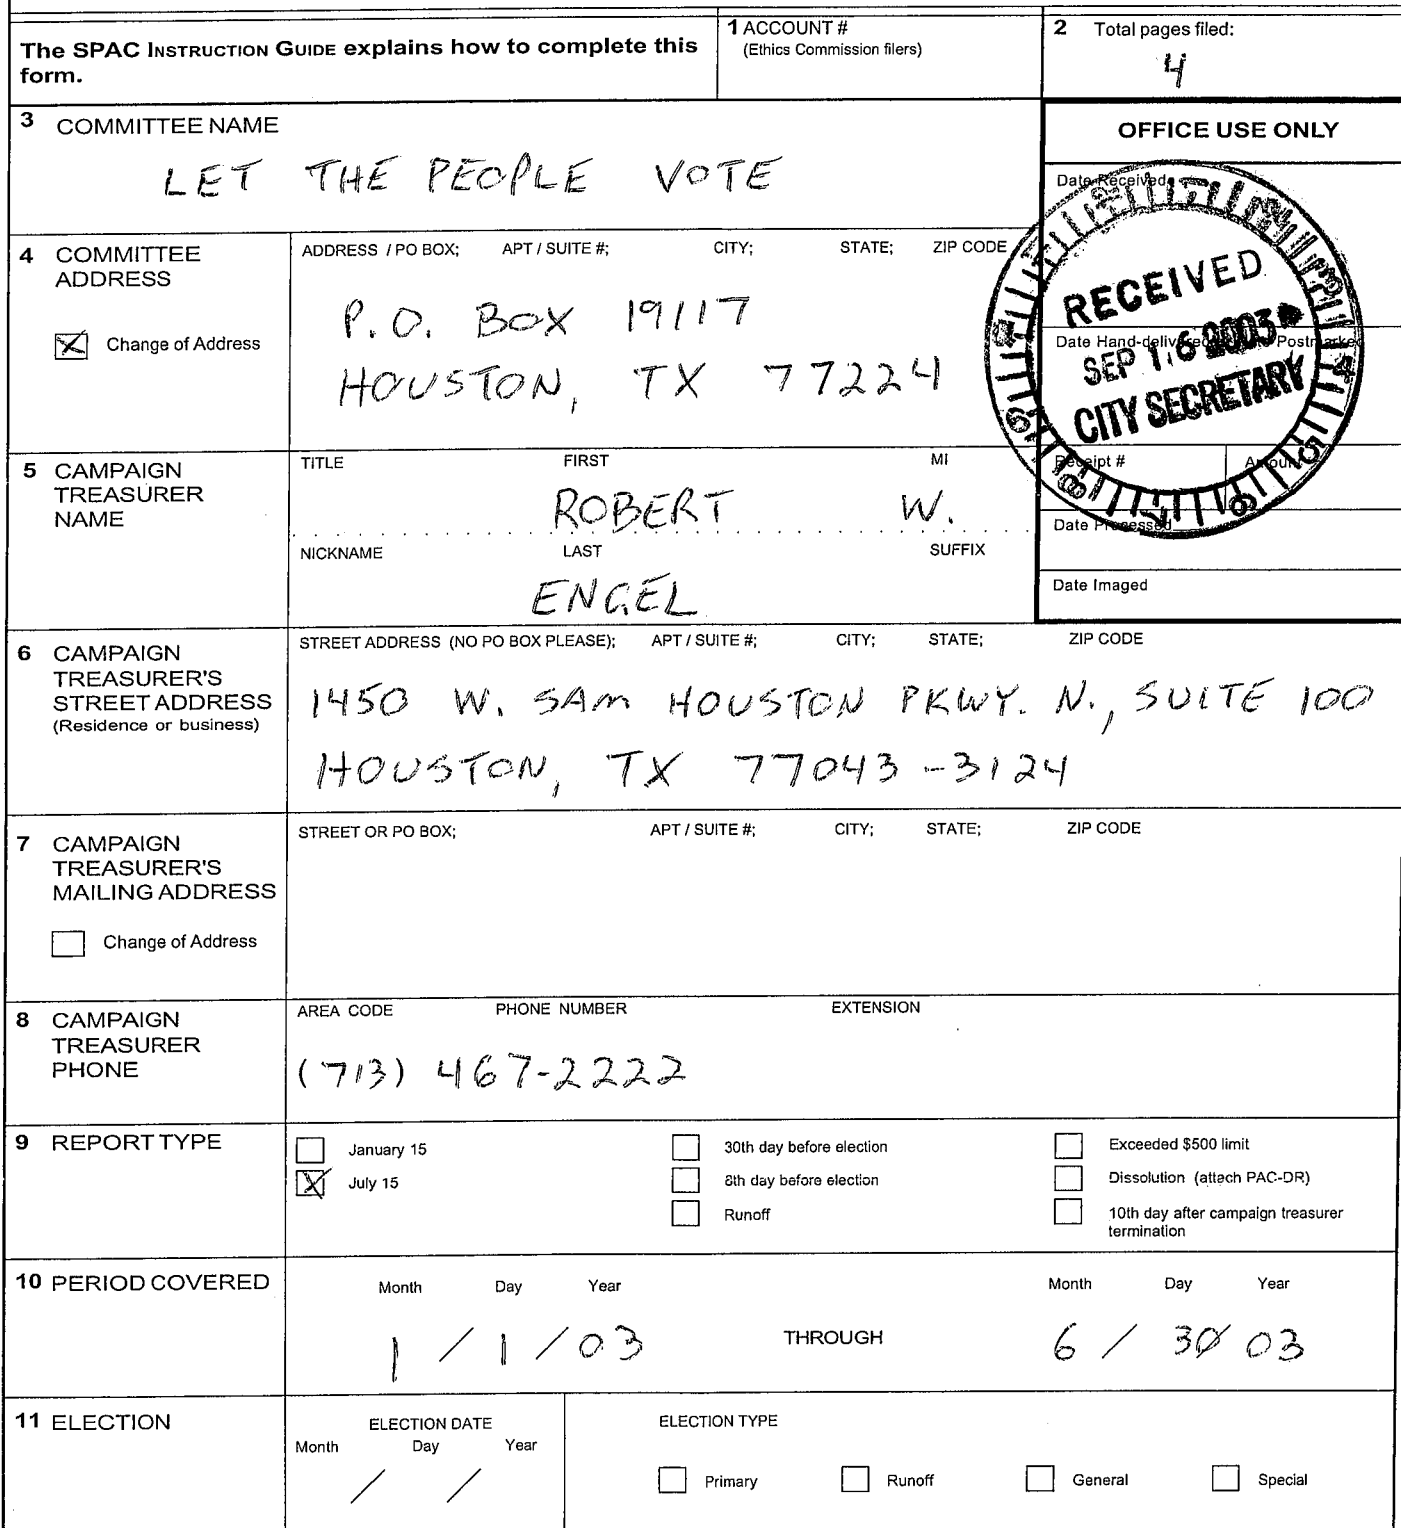 The SPAC INSTRUCTION GUIDE explains how to complete this form.
1 ACCOUNT #
(Ethics Commission filers)
2 Total pages filed:
4
3 COMMITTEE NAME
LET THE PEOPLE VOTE
OFFICE USE ONLY
Date Received
RECEIVED
SEP 16 2003
CITY SECRETARY
Date Hand-delivered Postmarked
Receipt #
Amount
Date Processed
Date Imaged
4 COMMITTEE ADDRESS
Change of Address
ADDRESS / PO BOX; APT / SUITE #; CITY; STATE; ZIP CODE
P.O. BOX 19117
HOUSTON, TX 77224
5 CAMPAIGN TREASURER NAME
TITLE FIRST MI
ROBERT W.
NICKNAME LAST SUFFIX
ENGEL
6 CAMPAIGN TREASURER'S STREET ADDRESS
(Residence or business)
STREET ADDRESS (NO PO BOX PLEASE); APT / SUITE #; CITY; STATE; ZIP CODE
1450 W. SAM HOUSTON PKWY. N., SUITE 100
HOUSTON, TX 77043-3124
7 CAMPAIGN TREASURER'S MAILING ADDRESS
Change of Address
STREET OR PO BOX; APT / SUITE #; CITY; STATE; ZIP CODE
8 CAMPAIGN TREASURER PHONE
AREA CODE PHONE NUMBER EXTENSION
(713) 467-2222
9 REPORT TYPE
January 15
July 15
30th day before election
8th day before election
Runoff
Exceeded $500 limit
Dissolution (attach PAC-DR)
10th day after campaign treasurer termination
10 PERIOD COVERED
Month Day Year
1 / 1 / 03
THROUGH
Month Day Year
6 / 30/ 03
11 ELECTION
ELECTION DATE
Month Day Year
/ /
ELECTION TYPE
Primary Runoff General Special